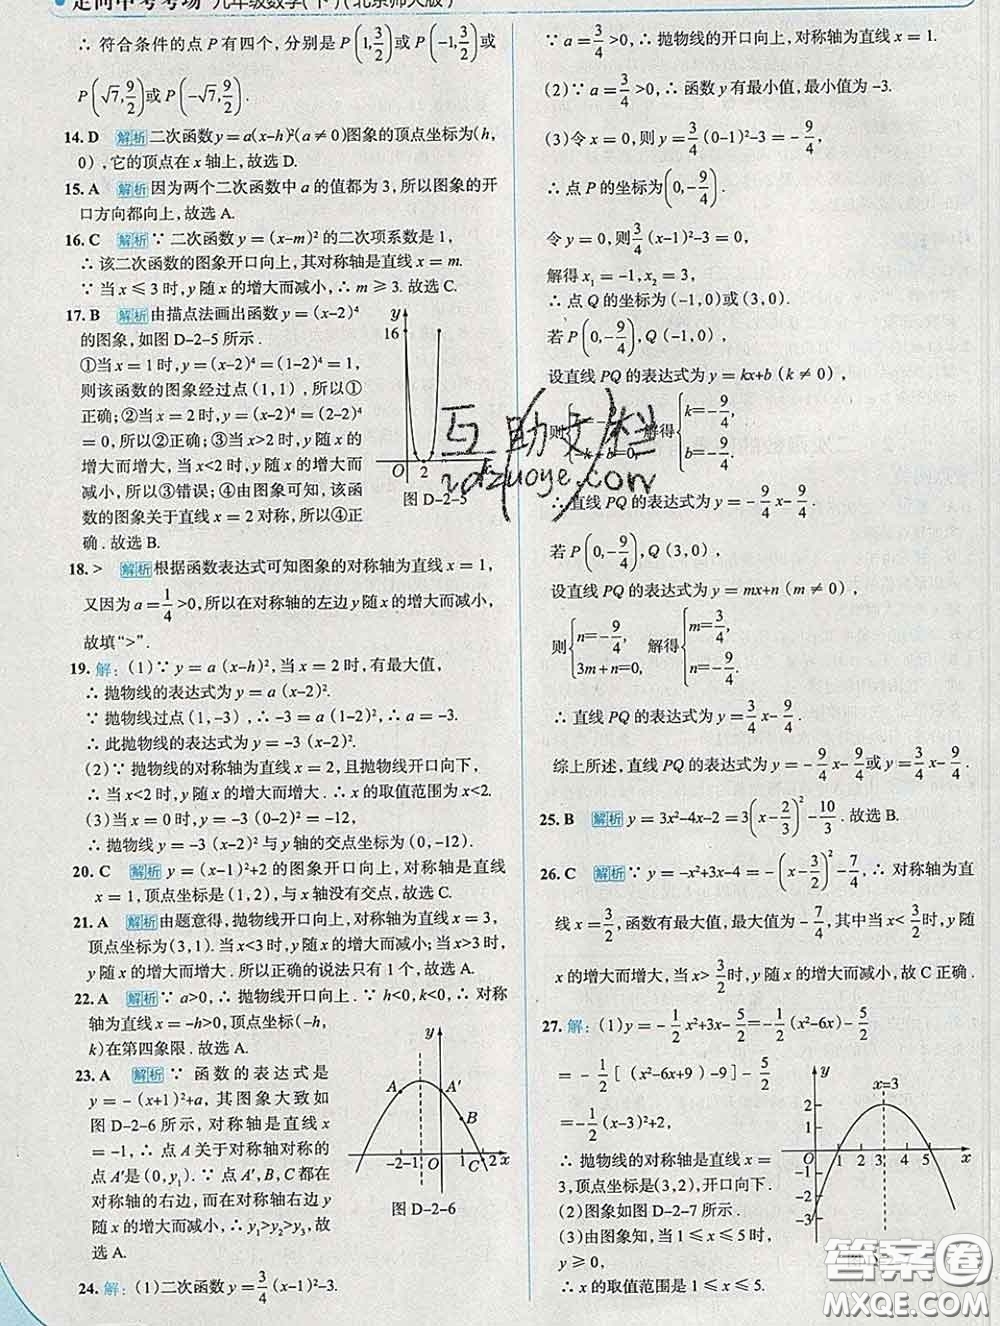 走向中考考场 九年级数学(下)(北京师大版)
∴ 符合条件的点 P 有四个，分别是 P(1,3/2)或 P(-1,3/2)或
P(√7,9/2)或 P(-√7,9/2).
14. D 解析 二次函数 y=a(x-h)²(a≠0)图象的顶点坐标为(h,
0)，它的顶点在 x 轴上，故选 D.
15. A 解析 因为两个二次函数中 a 的值都为 3，所以图象的开
口方向都向上，故选 A.
16. C 解析 ∵ 二次函数 y=(x-m)²的二次项系数是 1，
∴ 该二次函数的图象开口向上，其对称轴是直线 x=m.
∵ 当 x≤3 时，y 随 x 的增大而减小，∴ m≥3. 故选 C.
17. B 解析 由描点法画出函数 y=(x-2)⁴
的图象，如图 D-2-5 所示.
①当 x=1 时，y=(x-2)⁴=(1-2)⁴=1，
则该函数的图象经过点(1,1)，所以①
正确；②当 x=2 时，y=(x-2)⁴=(2-2)⁴
=0，所以②正确；③当 x>2 时，y 随 x 的
增大而增大，当 x<2 时，y 随 x 的增大而
减小，所以③错误；④由图象可知，该函
数的图象关于直线 x=2 对称，所以④正
确.故选 B.
y
16
O 2 x
图 D-2-5
18. > 解析 根据函数表达式可知图象的对称轴为直线 x=1，
又因为 a=1/4>0，所以在对称轴的左边 y 随 x 的增大而减小，
故填“>”.
19. 解：(1)∵ y=a(x-h)²，当 x=2 时，有最大值，
∴ 抛物线的表达式为 y=a(x-2)².
∵ 抛物线过点(1,-3)，∴ -3=a(1-2)²，∴ a=-3.
∴ 此抛物线的表达式为 y=-3(x-2)².
(2)∵ 抛物线的对称轴为直线 x=2，且抛物线开口向下，
∴ 当 x<2 时，y 随 x 的增大而增大.∴ x 的取值范围为 x<2.
(3)当 x=0 时，y=-3(0-2)²=-12，
∴ 抛物线 y=-3(x-2)²与 y 轴的交点坐标为(0,-12).
20. C 解析 y=(x-1)²+2 的图象开口向上，对称轴是直线
x=1，顶点坐标是(1,2)，与 x 轴没有交点，故选 C.
21. A 解析 由题意得，抛物线开口向上，对称轴为直线 x=3，
顶点坐标为(3,1). 当 x<3 时，y 随 x 的增大而减小；当 x>3 时，
y 随 x 的增大而增大. 所以正确的说法只有 1 个，故选 A.
22. A 解析 ∵ a>0，抛物线开口向上.∵ h<0,k<0，∴ 对称
轴为直线 x=-h>0，顶点坐标(-h,
k)在第四象限.故选 A.
23. A 解析 ∵ 函数的表达式是
y=-(x+1)²+a，其图象大致如
图 D-2-6 所示，对称轴是直线 x
=-1，∴ 点 A 关于对称轴对称的
点 A′是(0,y₁). ∵ 点 A′,B,C 都在
对称轴的右边，而在对称轴右边 y
随 x 的增大而减小，∴ y₁>y₂>y₃，故
选 A.
y
A A′
B
-2 -1 O 1 C 2 x
图 D-2-6
24. 解：(1)二次函数 y=3/4(x-1)²-3.
∵ a=3/4>0，∴ 抛物线的开口向上，对称轴为直线 x=1.
(2)∵ a=3/4>0，∴ 函数 y 有最小值，最小值为-3.
(3)令 x=0，则 y=3/4(0-1)²-3=-9/4，
∴ 点 P 的坐标为(0,-9/4).
令 y=0，则3/4(x-1)²-3=0，
解得 x₁=-1,x₂=3，
∴ 点 Q 的坐标为(-1,0)或(3,0).
若 P(0,-9/4)，Q(-1,0)，
设直线 PQ 的表达式为 y=kx+b(k≠0)，
则 -k+b=0, 解得{k=-9/4, b=-9/4.
互助文档
idzuoye.com
∴ 直线 PQ 的表达式为 y=-9/4x-9/4.
若 P(0,-9/4)，Q(3,0)，
设直线 PQ 的表达式为 y=mx+n(m≠0)，
则{n=-9/4, 3m+n=0, 解得{m=3/4, n=-9/4.
∴ 直线 PQ 的表达式为 y=3/4x-9/4.
综上所述，直线 PQ 的表达式为 y=-9/4x-9/4或 y=3/4x-9/4.
25. B 解析 y=3x²-4x-2=3(x-2/3)²-10/3.故选 B.
26. C 解析 ∵ y=-x²+3x-4=-(x-3/2)²-7/4，∴ 对称轴为直
线 x=3/2，函数有最大值，最大值为-7/4，其中当 x<3/2时，y 随
x 的增大而增大，当 x>3/2时，y 随 x 的增大而减小，故 C 正确.
27. 解：(1)y=-1/2x²+3x-5/2=-1/2(x²-6x)-5/2
=-1/2[(x²-6x+9)-9]-5/2
=-1/2(x-3)²+2，
∴ 抛物线的对称轴是直线 x=
3，顶点坐标是(3,2)，开口向下.
(2)图象如图 D-2-7 所示.
(3)由图象知，当 1≤x≤5 时，
y≥0，
∴ x 的取值范围是 1≤x≤5.
y
x=3
2
1
O 1 2 3 4 5 x
-1
-2
-3
答案圈
MXQE.COM